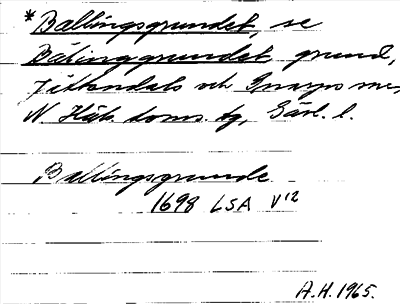 *Ballingsgrundet, se
Båtinggrundet, grund,
Jättendals och Gnarps sn,
N. Häls. doms. tg, Gävl. l.
Ballingsgrunde
1698 LSA V12
A.H. 1965.